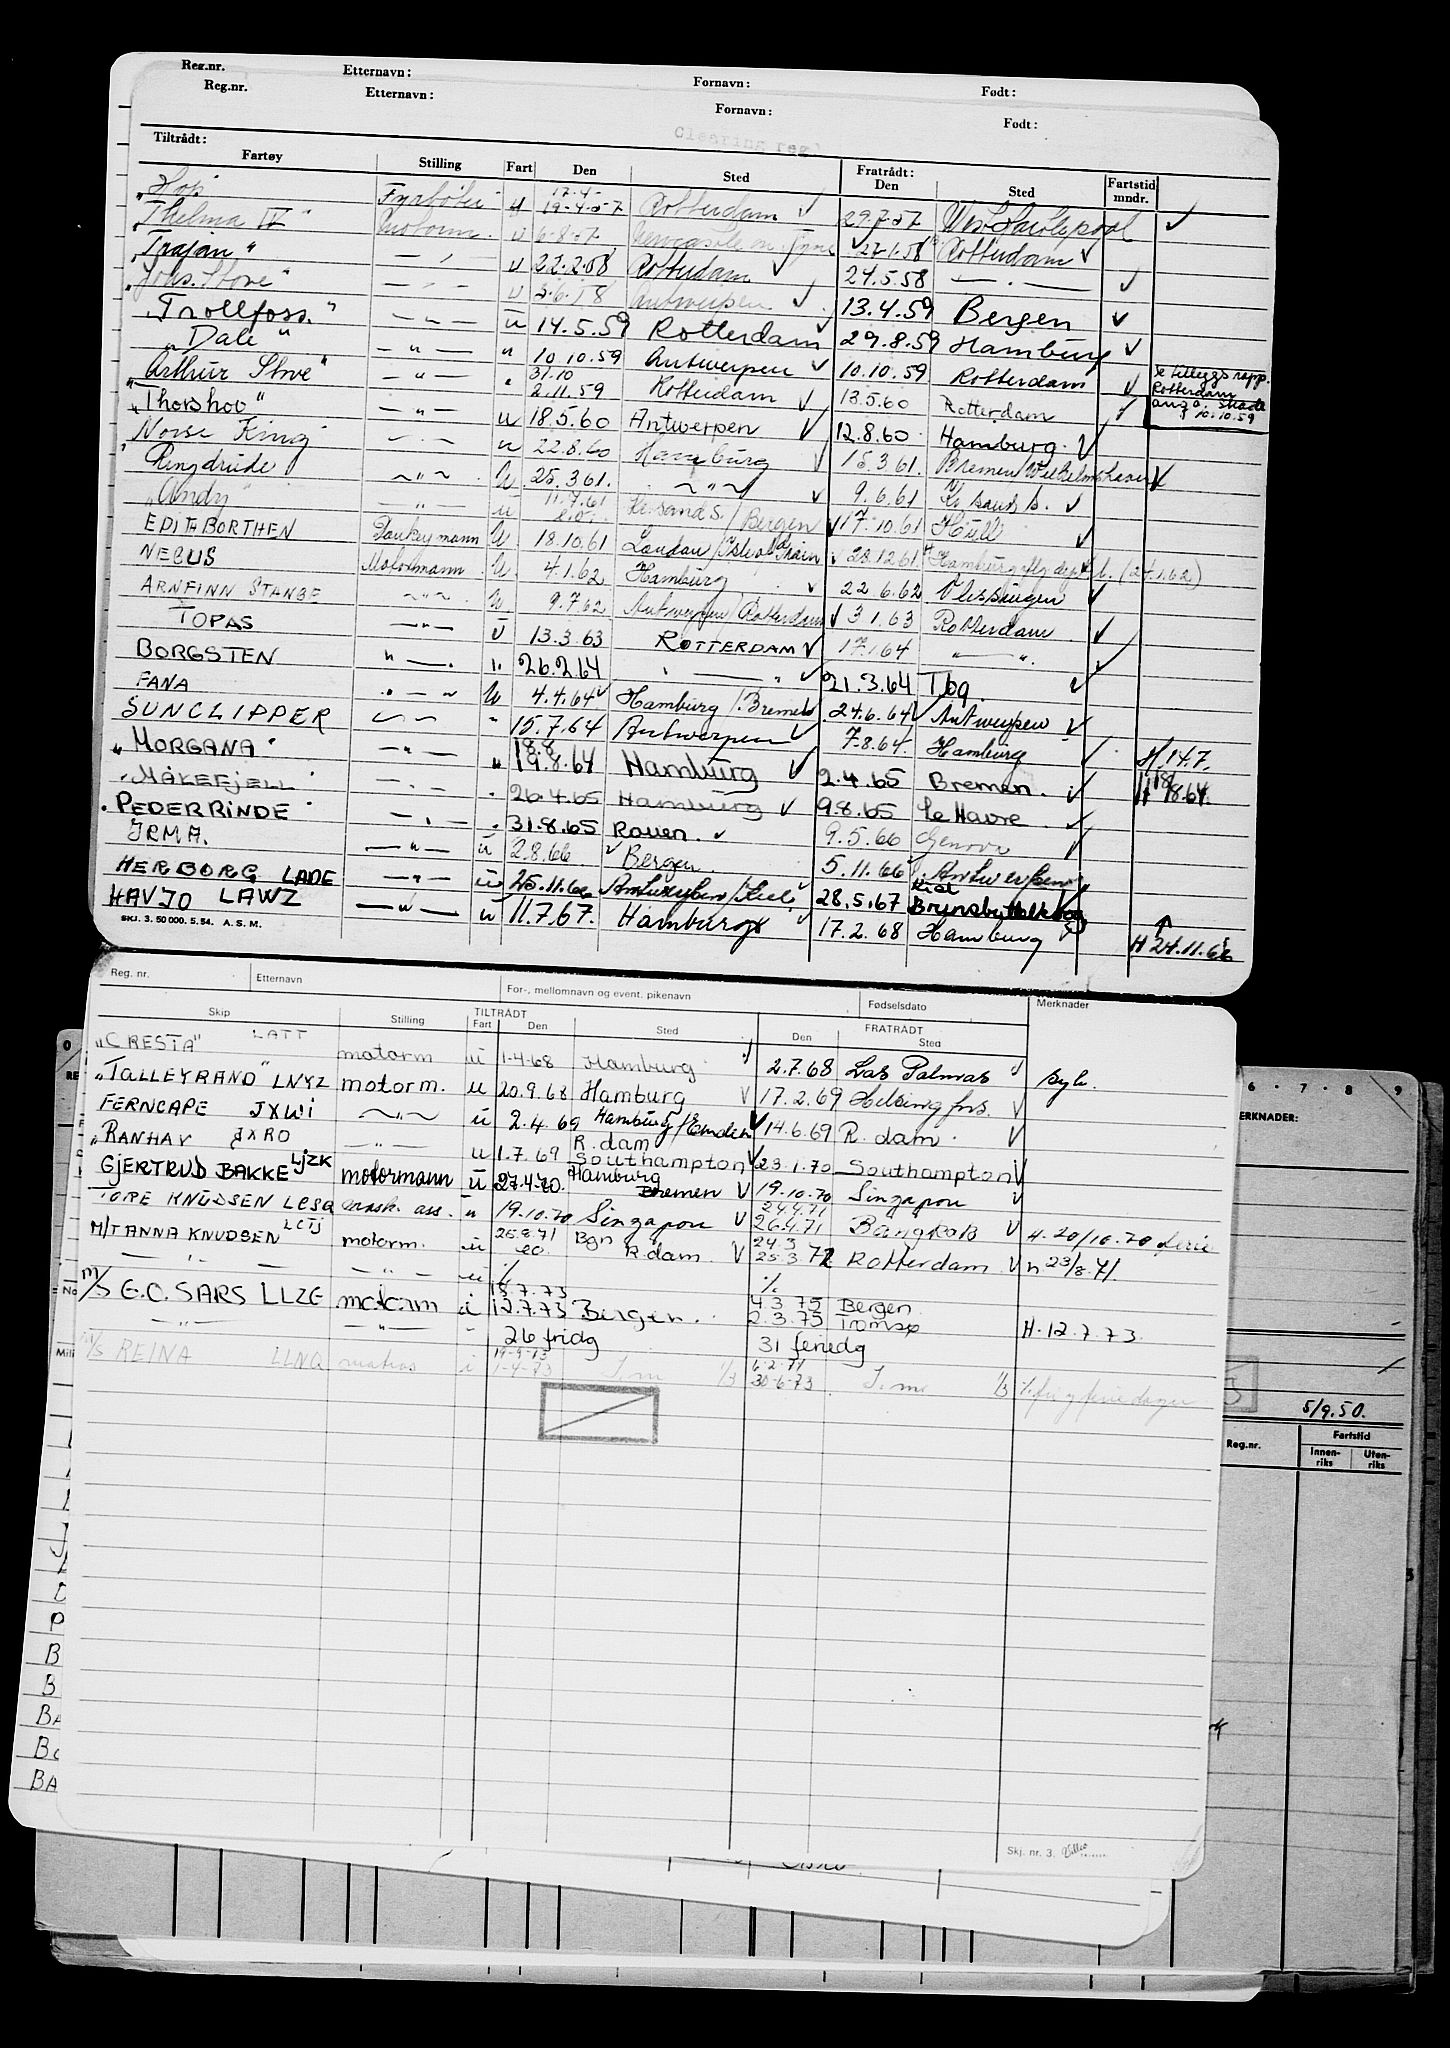 Reg.nr. Etternavn: Fornavn: Født:
Reg.nr. Etternavn: Fornavn: Født:
Clearing reg
Tiltrådt: Fratrådt:
Fartøy Stilling Fart Den Sted Den Sted Fartstid mndr.
17.4.
"Hop" Fyrbøter u 19-4-57 Rotterdam ✓ 29.7.57 West Hartlepool ✓
"Thelma IV" Motorm. u 6-8-57 Newcastle on Tyne ✓ 22.1.58 Rotterdam ✓
"Trajan" — " — u 22.2.58 Rotterdam ✓ 24.5.58 — " — ✓
"Johs. Stove" — " — u 3.6.58 Antwerpen ✓ 13.4.59 Bergen ✓
"Trollfoss" — " — u 14.5.59 Rotterdam ✓ 29.8.59 Hamburg ✓
"Dale" — " — " 10.10.59 Antwerpen ✓ 10.10.59 Rotterdam ✓ se tilleggsrapp. Rotterdam
31.10
"Arthur Stove" — " — " 2.11.59 Rotterdam ✓ 13.5.60 Rotterdam ✓ ang. skade 10.10.59
"Thorshov" — " — u 18.5.60 Antwerpen ✓ 12.8.60 Hamburg ✓
Norse King — " — u 22.8.60 Hamburg ✓ 15.3.61. Bremen/Wilhelmshaven ✓
"Ringdrude" — " — u 25.3.61. — " — ✓ 9.6.61 Kr.sand S. ✓
"Andy" — " — u 11.7.61 Kr.sand S./Bergen ✓ 17.10.61 Hull ✓
EDITH BORTHEN Donkeymann u 18.10.61 London/Isle of Grain ✓ 23.12.61 Hamburg (24.1.62)
NECUS Motormann u 4.1.62 Hamburg ✓ 22.6.62 Vlissingen ✓
ARNFINN STANGE — " — u 9.7.62 Antwerpen/Rotterdam ✓ 3.1.63 Rotterdam ✓
TOPAS — " — u 13.3.63 ROTTERDAM ✓ 17.1.64 — " — ✓
BORGSTEN — " — " 26.2.64 — " — ✓ 21.3.64 Tbg. ✓
FANA — " — u 4.4.64 ✓ Hamburg/Bremen 24.6.64 ✓ Antwerpen ✓
SUNCLIPPER — " — " 15.7.64 Antwerpen ✓ 7.8.64 Hamburg ✓ H. 14.7.
18.8
"MORGANA" — " — " 19.8.64 Hamburg ✓ 2.4.65 Bremen. ✓ H 18/8.64.
"MÅKEFJELL" — " — " 26.4.65 Hamburg ✓ 9.8.65 Le Havre ✓
"PEDER RINDE" — " — " 31.8.65 Rouen. ✓ 9.5.66 Genova ✓
IRMA. — " — u 2.8.66 ✓ Bergen 5.11.66 Antwerpen ✓
HERBORG LADE — " — u 25.11.66 Antwerpen/Kiel ✓ 28.5.67 Kiel Brunsbüttelkoog
HAVJO LAWZ — " — u 11.7.67. Hamburg ✓ 17.2.68 Hamburg ✓ H 24.11.66
SKJ. 3. 50 000. 5.54. A.S.M.
Reg. nr. Etternavn For-, mellomnavn og event. pikenavn Fødselsdato Merknader
TILTRÅDT FRATRÅDT
Skip Stilling Fart Den Sted Den Sted
"CRESTA" LATT motorm u 1-4-68 Hamburg ✓ 2.7.68 Las Palmas ✓ syk.
"TALLEYRAND" LNYZ motorm. u 20.9.68 Hamburg ✓ 17.2.69 Helsingfors. ✓
FERNCAPE JXWI — " — u 2.4.69 Hamburg/Emden ✓ 14.6.69 R.dam. ✓
R.dam
"RANHAV JXRO — " — u 1.7.69 Southampton ✓ 23.1.70 Southampton ✓
GJERTRUD BAKKE LJZK motormann u 27.4.70. Hamburg Bremen ✓ 19.10.70 Singapore ✓
24.4.71
TORE KNUDSEN LESQ mask. ass. u 19.10.70 Singapore ✓ 26.4.71 Bangkok ✓ H. 20/10.70 ferie
25.8.71 Bgn 24.3
M/T ANNA KNUDSEN LCTJ motorm. u 20. R.dam ✓ 25.3.72 Rotterdam ✓ H 23/8.71
— " — — " — u % %
13.7.73 4.3.75 Bergen
M/S G.O. SARS LLZE motorm i 12.7.73 Bergen. 2.3.75 Tromsø H. 12.7.73.
— " — — " — 26 fridg 31 feriedg
M/S REINA LLNQ matros i 1-4-73 1/3 30-6-73 1/3
5/9.50.
6 7 8 9
MERKNADER:
Reg.nr. Fartstid
Innen-riks Uten-riks
Skj. nr. 3.